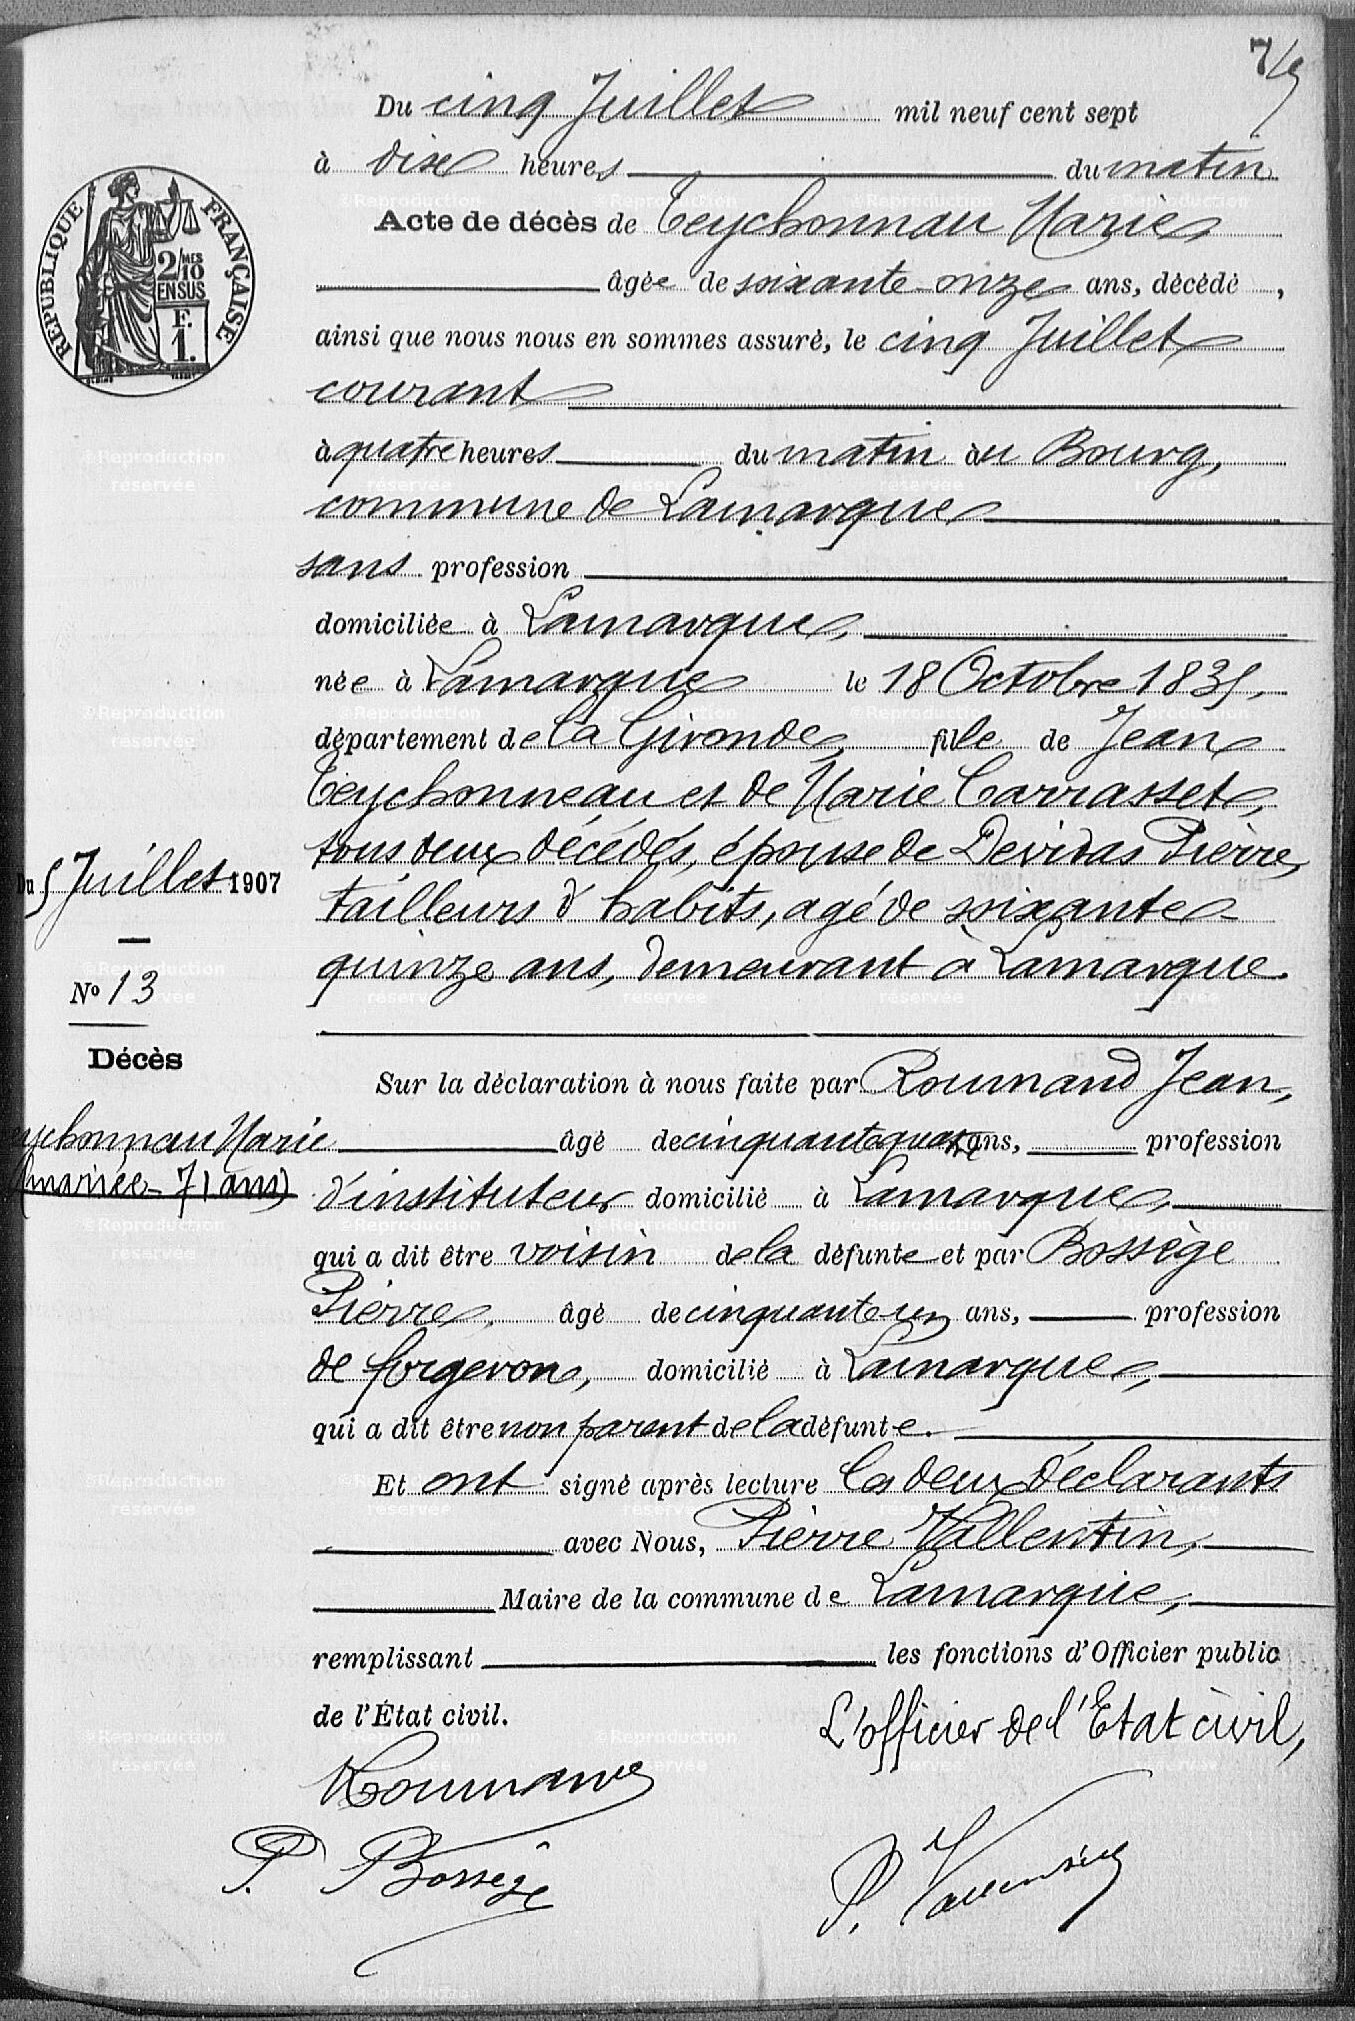 7/9
Du cinq Juillet mil neuf cent sept
à dix heures du matin
Acte de décès de Teychonnau Marie
âgée de soixante-onze ans, décédé ,
ainsi que nous nous en sommes assuré, le cinq Juillet
courant
à quatre heures du matin au Bourg,
commune de Lamarque
sans profession
domiciliée à Lamarque,
née à Lamarque le 18 Octobre 1835,
département de la Gironde, fille de Jean
Teychonneau et de Marie Carrasset,
tous deux décédés, épouse de Devidas Pierre,
tailleurs d'habits, agé de soixante-
quinze ans, demeurant à Lamarque.
Du 5 Juillet 1907
No 13
Décès
eychonnau Marie
(mariée - 71 ans)
RÉPUBLIQUE FRANÇAISE
2/10 MES
EN SUS
F.
1.
Sur la déclaration à nous faite par Roumand Jean,
âgé de cinquante quatre ans, profession
d'instituteur domicilié à Lamarque,
qui a dit être voisin de la défunte et par Bossège
Pierre, âgé de cinquante un ans, profession
de forgeron, domicilié à Lamarque,
qui a dit être non parent de la défunte.
Et ont signé après lecture les deux déclarants
avec Nous, Pierre Vallentin,
Maire de la commune de Lamarque,
remplissant les fonctions d'Officier public
de l'État civil.
L'officier de l'Etat civil,
Roumand
P. Bossège
P. Vallentin
©Reproduction
réservée